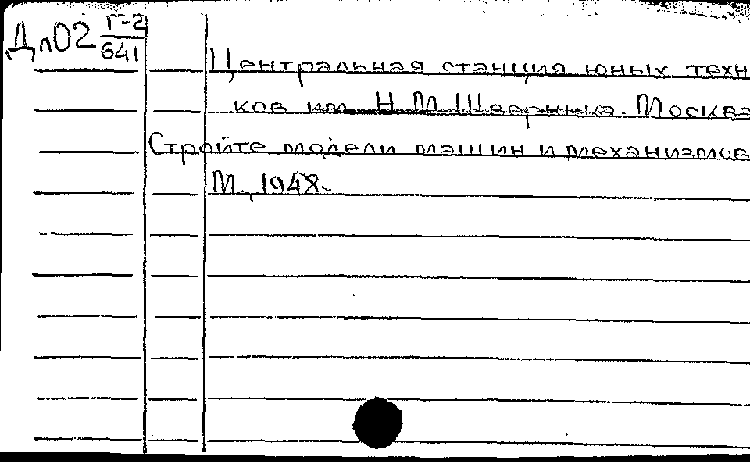 Дл02 Г-2
641
Центральная станция юных техн
ков им. Н. М. Шверника. Москва
Стройте модели машин и механизмов
М., 1948.